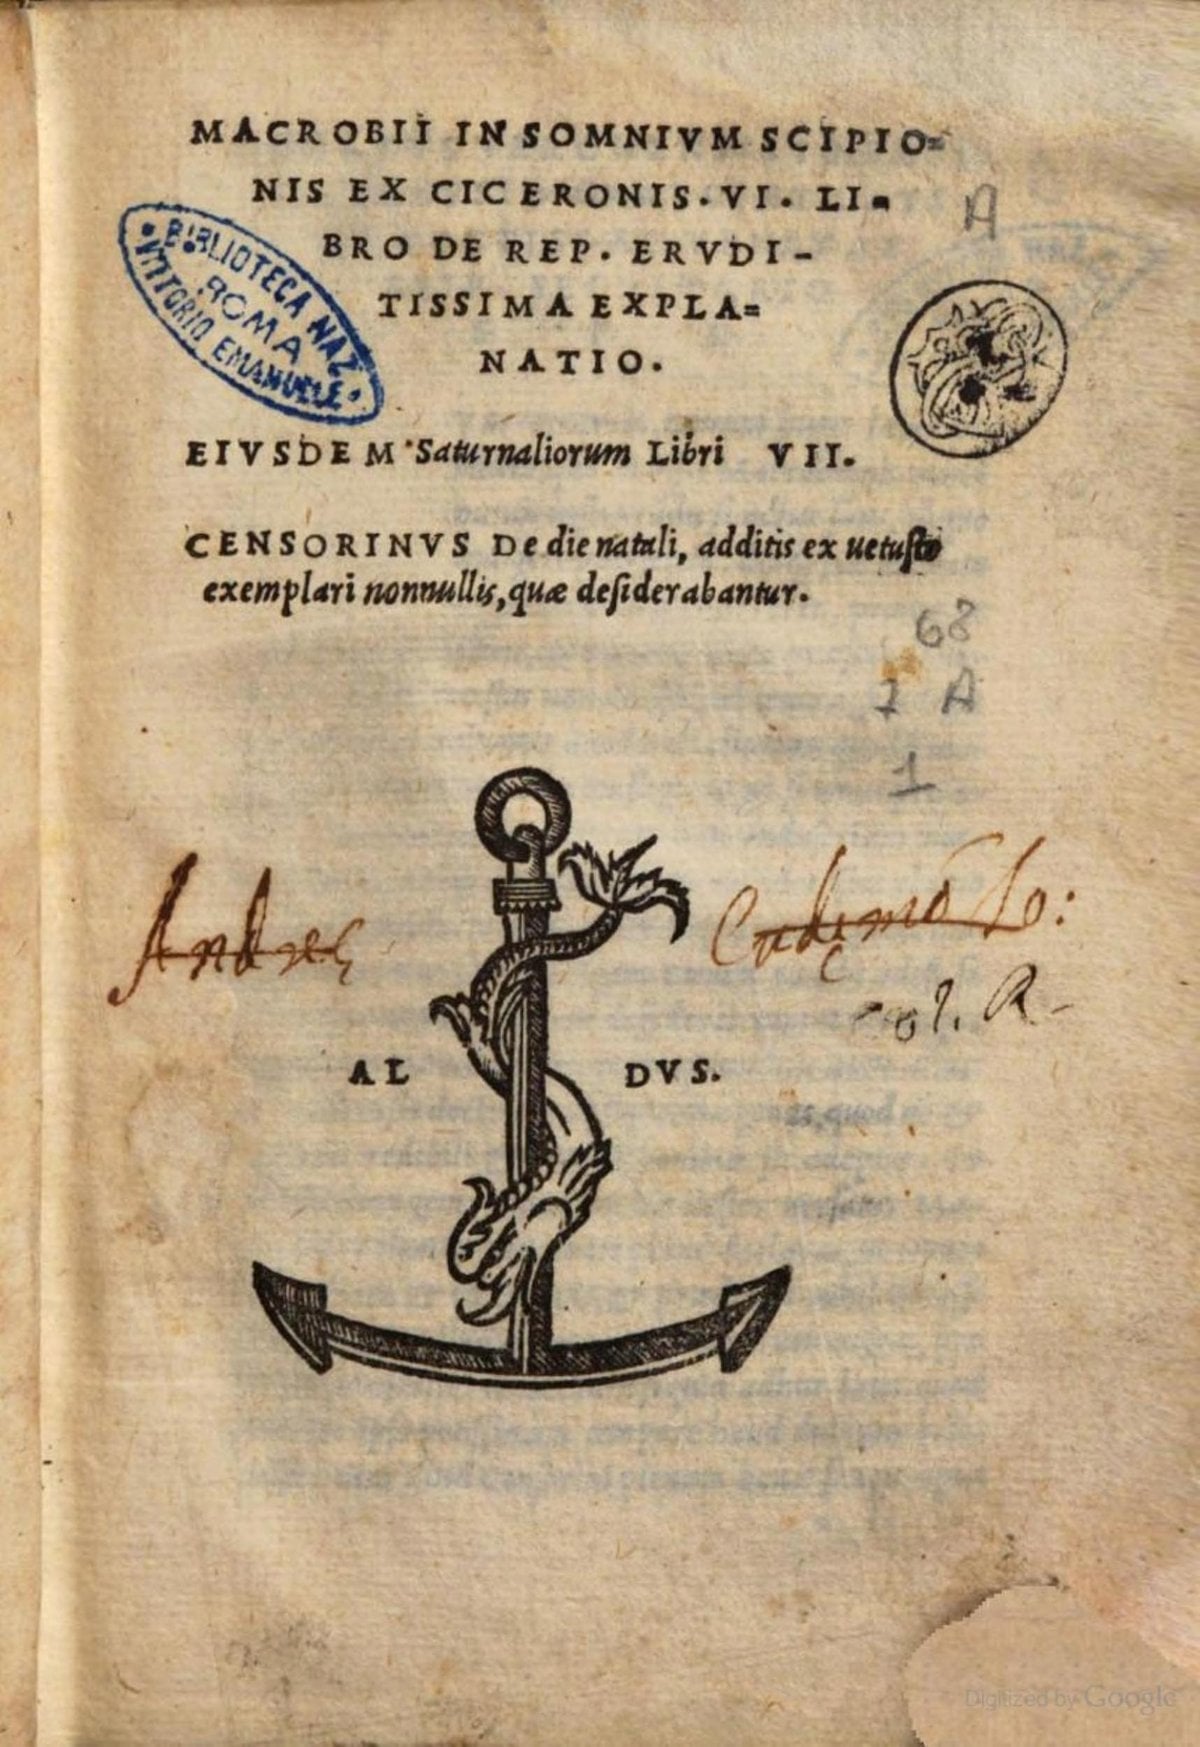 MACROBII IN SOMNIVM SCIPIO=
NIS EX CICERONIS. VI. LI=
BRO DE REP. ERVDI-
TISSIMA EXPLA=
NATIO.
A
BIBLIOTECA NAZ
ROMA
VITTORIO EMANUELE
EIVSDEM Saturnaliorum Libri VII.
CENSORINVS De die natali, additis ex uetusto
exemplari nonnullis, quæ desiderabantur.
68
7 A
1
AL DVS.
Digitized by Google